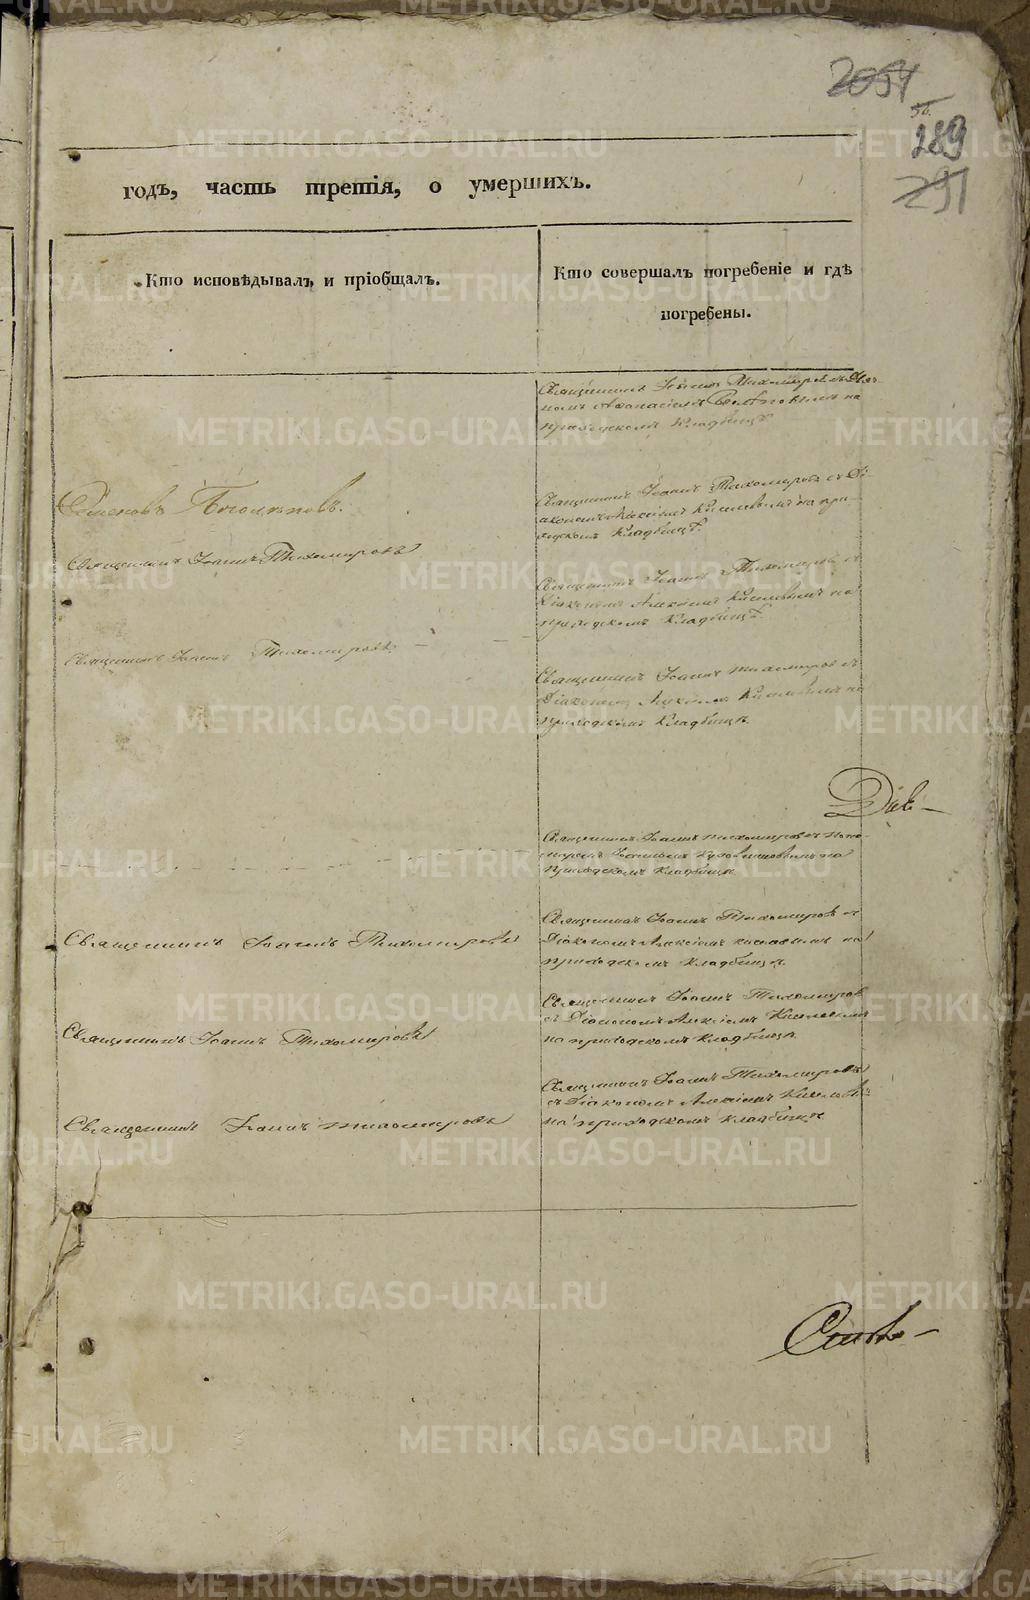 2051
289
291
годъ, часть третія, о умершихъ.
Кто исповѣдывалъ и пріобщалъ.
Кто совершалъ погребеніе и гдѣ
погребены.
Священникъ Іоаннъ Тихомировъ
на
приходскомъ кладбищѣ
Священникъ Іоаннъ Тихомировъ съ Ді-
акономъ Алексіемъ Киселевымъ на при-
ходскомъ кладбищѣ.
Священникъ Іоаннъ Тихомировъ
Священникъ Іоаннъ Тихомировъ съ
Діакономъ Алексіемъ Киселевымъ на
приходскомъ кладбищѣ.
Священникъ Іоаннъ Тихомировъ
Священникъ Іоаннъ Тихомировъ съ
Діакономъ Алексіемъ Киселевымъ на
приходскомъ кладбищѣ.
Священникъ Іоаннъ Тихомировъ съ Поно-
маремъ на
приходскомъ кладбищѣ
Священникъ Іоаннъ Тихомировъ
Священникъ Іоаннъ Тихомировъ съ
Діакономъ Алексіемъ Киселевымъ на
приходскомъ кладбищѣ.
Священникъ Іоаннъ Тихомировъ
Священникъ Іоаннъ Тихомировъ
съ Діакономъ Алексіемъ Киселевымъ
на приходскомъ кладбищѣ.
Священникъ Іоаннъ Тихомировъ
Священникъ Іоаннъ Тихомировъ
съ Діакономъ Алексіемъ Киселевы
на приходскомъ кладбищѣ
METRIKI.GASO-URAL.RU